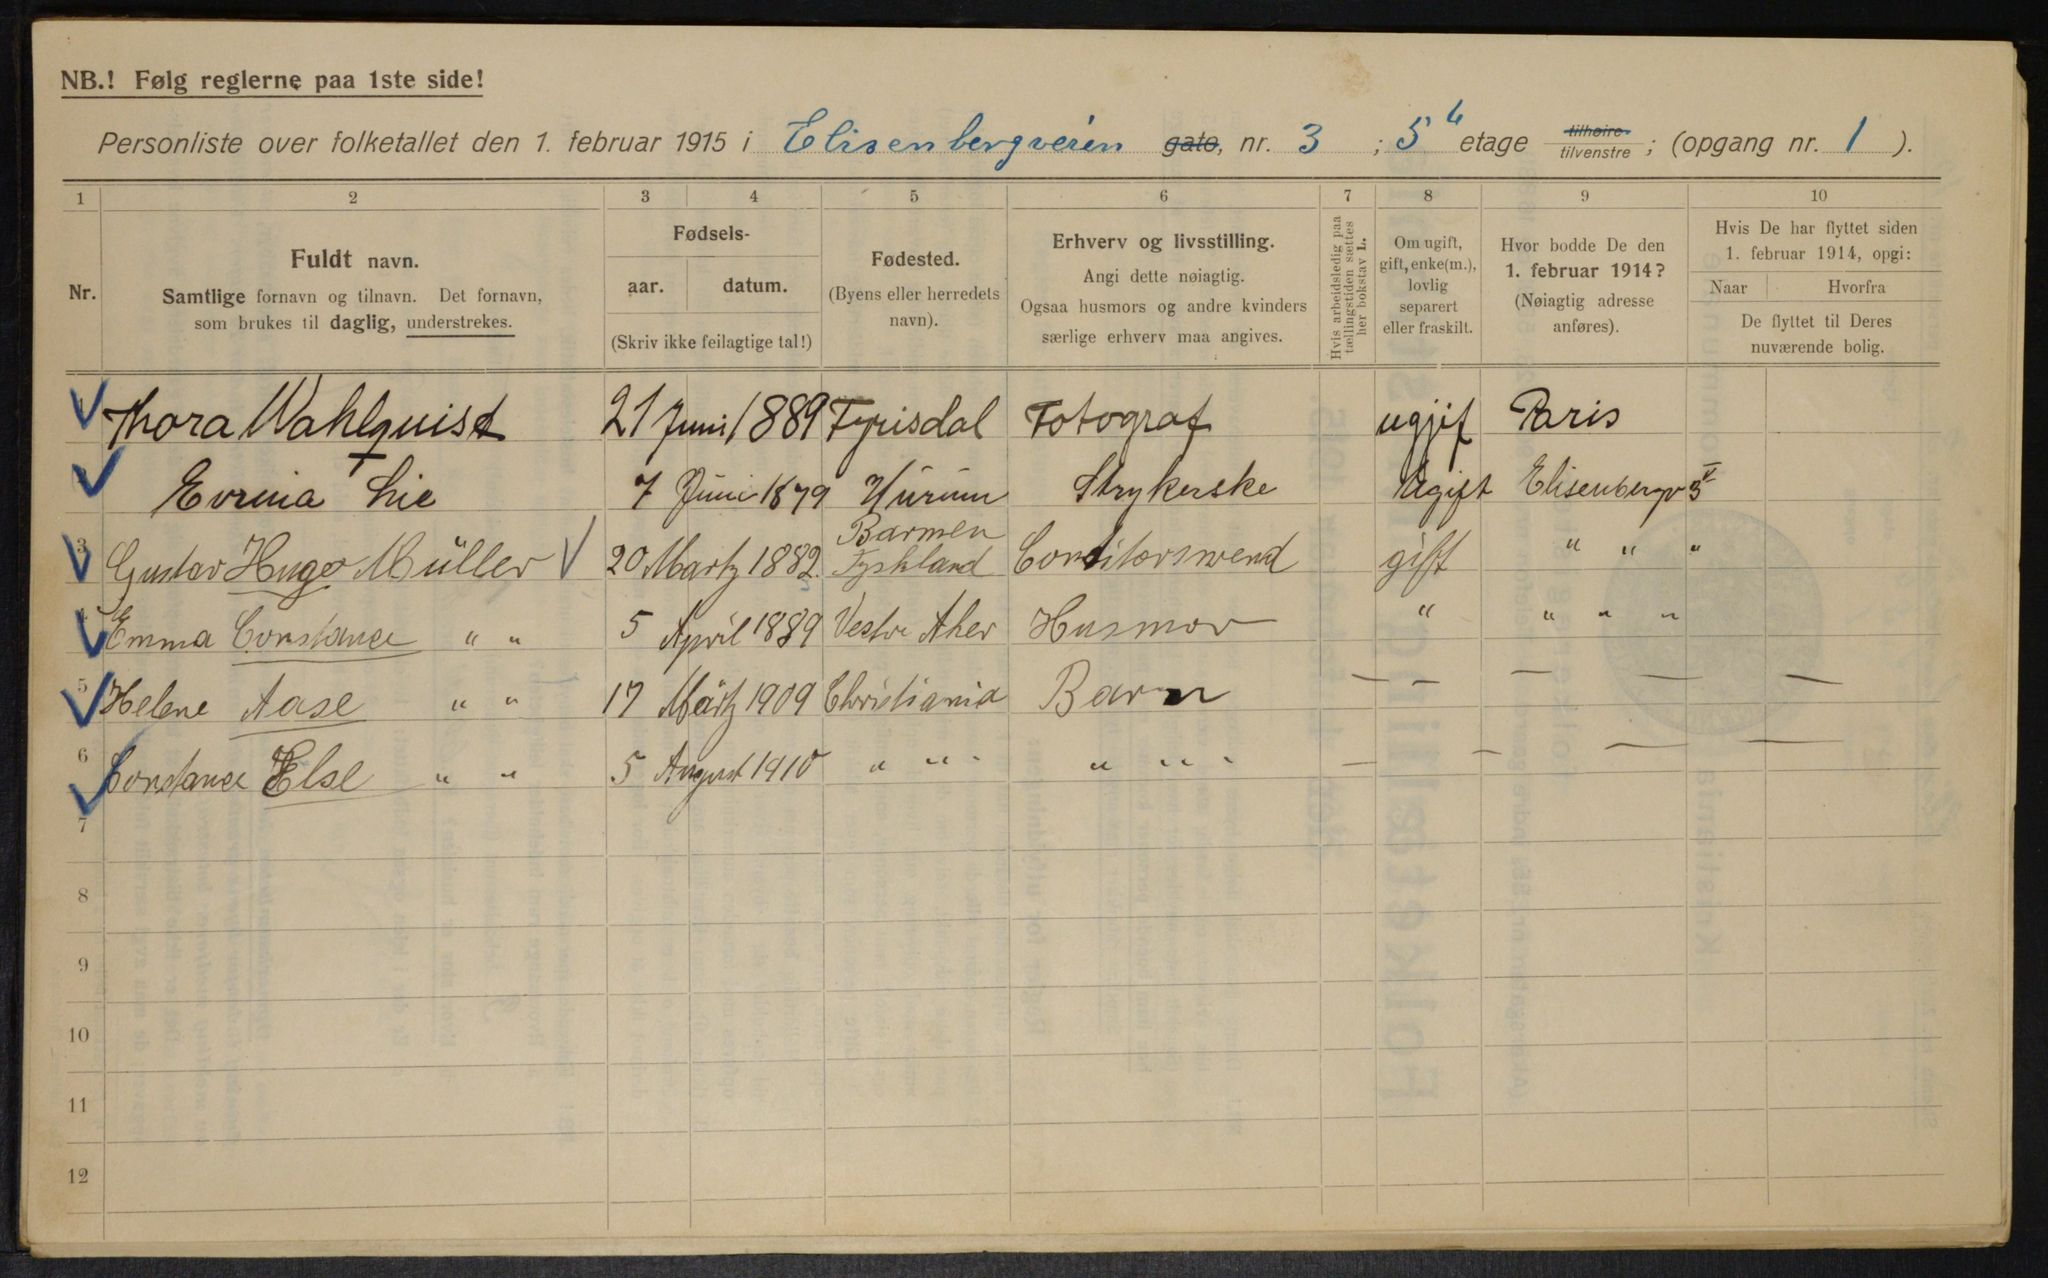 NB.! Følg reglerne paa 1ste side!
Personliste over folketallet den 1. februar 1915 i Elisenbergveien gate, nr. 3 ; 5 etage tilhøire tilvenstre ; (opgang nr. 1 ).
1 2 3 4 5 6 7 8 9 10
Nr.
Fuldt navn.
Samtlige fornavn og tilnavn. Det fornavn,
som brukes til daglig, understrekes.
Fødsels-
aar. datum.
(Skriv ikke feilagtige tal!)
Fødested.
(Byens eller herredets
navn).
Erhverv og livsstilling.
Angi dette nøiagtig.
Ogsaa husmors og andre kvinders
særlige erhverv maa angives.
Hvis arbeidsledig paa
tællingstiden sættes
her bokstav L.
Om ugift,
gift, enke(m.),
lovlig
separert
eller fraskilt.
Hvor bodde De den
1. februar 1914?
(Nøiagtig adresse
anføres).
Hvis De har flyttet siden
1. februar 1914, opgi:
Naar Hvorfra
De flyttet til Deres
nuværende bolig.
Thora Wahlquist 21 Juni 1889 Fyrisdal Fotograf ugjif Paris
Lie 7 Juni 1879 Hurum Strykerske Ugift Elisenbergv 3
3 Gustav Hugo Müller 20 Martz 1882 Barmen Tyskland Conditorsvend gift " " "
Emma Constance " " 5 April 1889 Vestre Aker Husmor " " " "
5 Helene Aase " " 17 Märtz 1909 Christiania Barn — — — — —
6 Constance Else " " 5 August 1910 " " " " " " — — — —
7
8
9
10
11
12